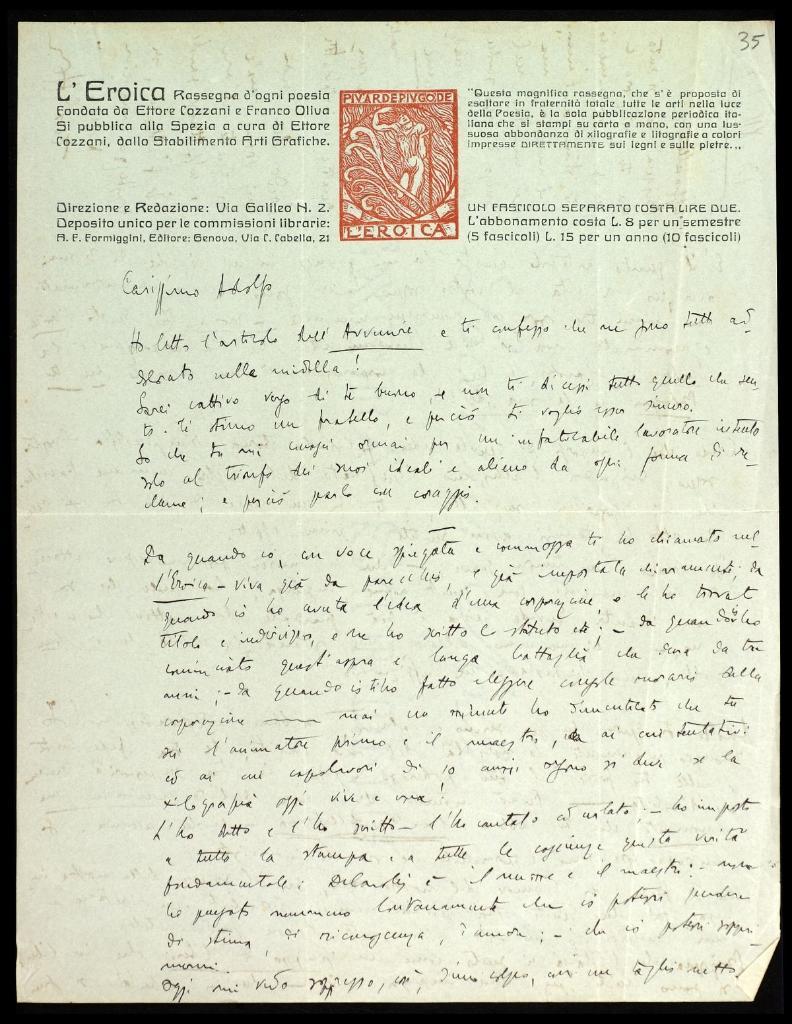 35
L'Eroica Rassegna d'ogni poesia
Fondata da Ettore Cozzani e Franco Oliva
Si pubblica alla Spezia a cura di Ettore
Cozzani, dallo Stabilimento Arti Grafiche.
Direzione e Redazione: Via Galileo N. 2.
Deposito unico per le commissioni librarie:
A. F. Formiggini, Editore: Genova, Via C. Cabella, 21
PIVARDEPIVGODE
L'EROICA
"Questa magnifica rassegna, che s'è proposta di
esaltare in fraternità totale tutte le arti nella luce
della Poesia, è la sola pubblicazione periodica ita-
liana che si stampi su carta a mano, con una lus-
suosa abbondanza di xilografie e litografie a colori
impresse DIRETTAMENTE sui legni e sulle pietre...
UN FASCICOLO SEPARATO COSTA LIRE DUE.
L'abbonamento costa L. 8 per un semestre
(5 fascicoli) L. 15 per un anno (10 fascicoli)
Carissimo Adolfo
Ho letto l'articolo dell'Avvenire e ti confesso che ne sono tutto ad-
dolorato nella midolla!
Sarei cattivo verso di te buono, se non ti dicessi tutto quello che sen-
to. Ti stimo un fratello, e perciò ti voglio esser sincero.
So che tu mi ormai per un infaticabile lavoratore intento
solo al trionfo dei suoi ideali e alieno da ogni forma di re-
clame; e perciò parlo con coraggio.
Da quando io, con voce spiegata e commossa ti ho chiamato nel-
l'Eroica - viva già da parecchio, e già impostata chiaramente; da
quando io ho avuta l'idea d'una corporazione, e le ho trovato
titolo e indirizzo, e ne ho scritto lo statuto etc; - da quando ho
cominciato quest'aspra e lunga battaglia che dura da tre
anni; - da quando io ti ho fatto eleggere console onorario della
corporazione mai un minuto ho dimenticato che tu
sei l'animatore primo e il maestro, ai cui tentativi
ed ai cui capolavori di 10 anni sono si deve se la
xilografia oggi vive e vola!
L'ho detto e l'ho scritto - l'ho cantato ed urlato; - ho imposto
a tutta la stampa e a tutte le coscienze questa verità
fondamentale: DeCarolis è il e il maestro: -
ho pensato nemmeno lontanamente che io potessi perdere
di stima, di riconoscenza, d'amore; - che io potessi
Oggi mi vedo soppresso, così, d'un colpo, con un taglio netto,